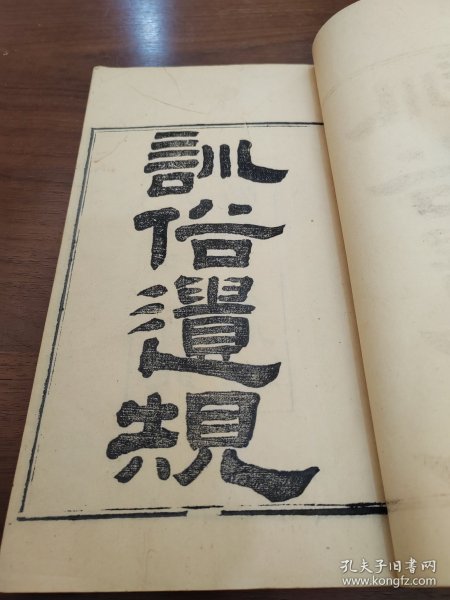 訓俗遺規
孔夫子旧书网
www.kongfz.com